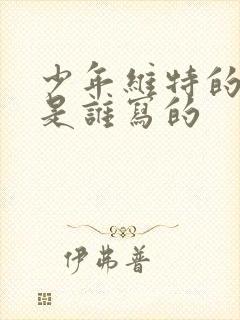 少年維特的
是誰寫的
伊弗普